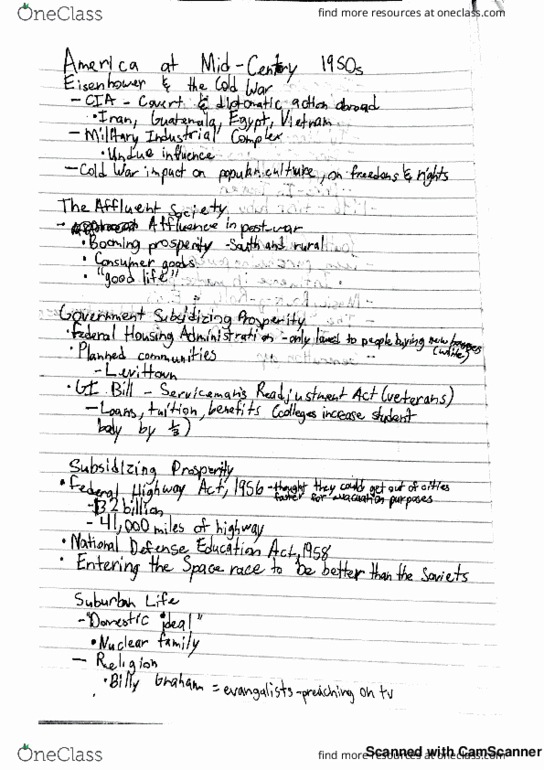 OneClass
find more resources at oneclass.com
America at Mid-Century 1950s
Eisenhower & the Cold War
- CIA - Covert & diplomatic action abroad
• Iran, Guatemala, Egypt, Vietnam
- Military Industrial Complex
• Undue influence
- Cold War impact on popular culture, on freedoms & rights
The Affluent Society
- Affluence in post war
• Booming prosperity - South and rural
• Consumer goods
• "good life"
Government Subsidizing Prosperity
• Federal Housing Administration - only loaned to people buying new homes
(white)
• Planned communities
- Levittown
• GI Bill - Serviceman's Readjustment Act (veterans)
- Loans, tuition, benefits (colleges increase student
body by 1/3)
Subsidizing Prosperity
• Federal Highway Act, 1956 - thought they could get out of cities
faster for evacuation purposes
- $32 billion
- 41,000 miles of highway
• National Defense Education Act, 1958
• Entering the Space race to be better than the Soviets
Suburban Life
- "Domestic ideal"
• Nuclear family
- Religion
• Billy Graham = evangalists - preaching on tv
OneClass
find more resources at oneclass.com
Scanned with CamScanner